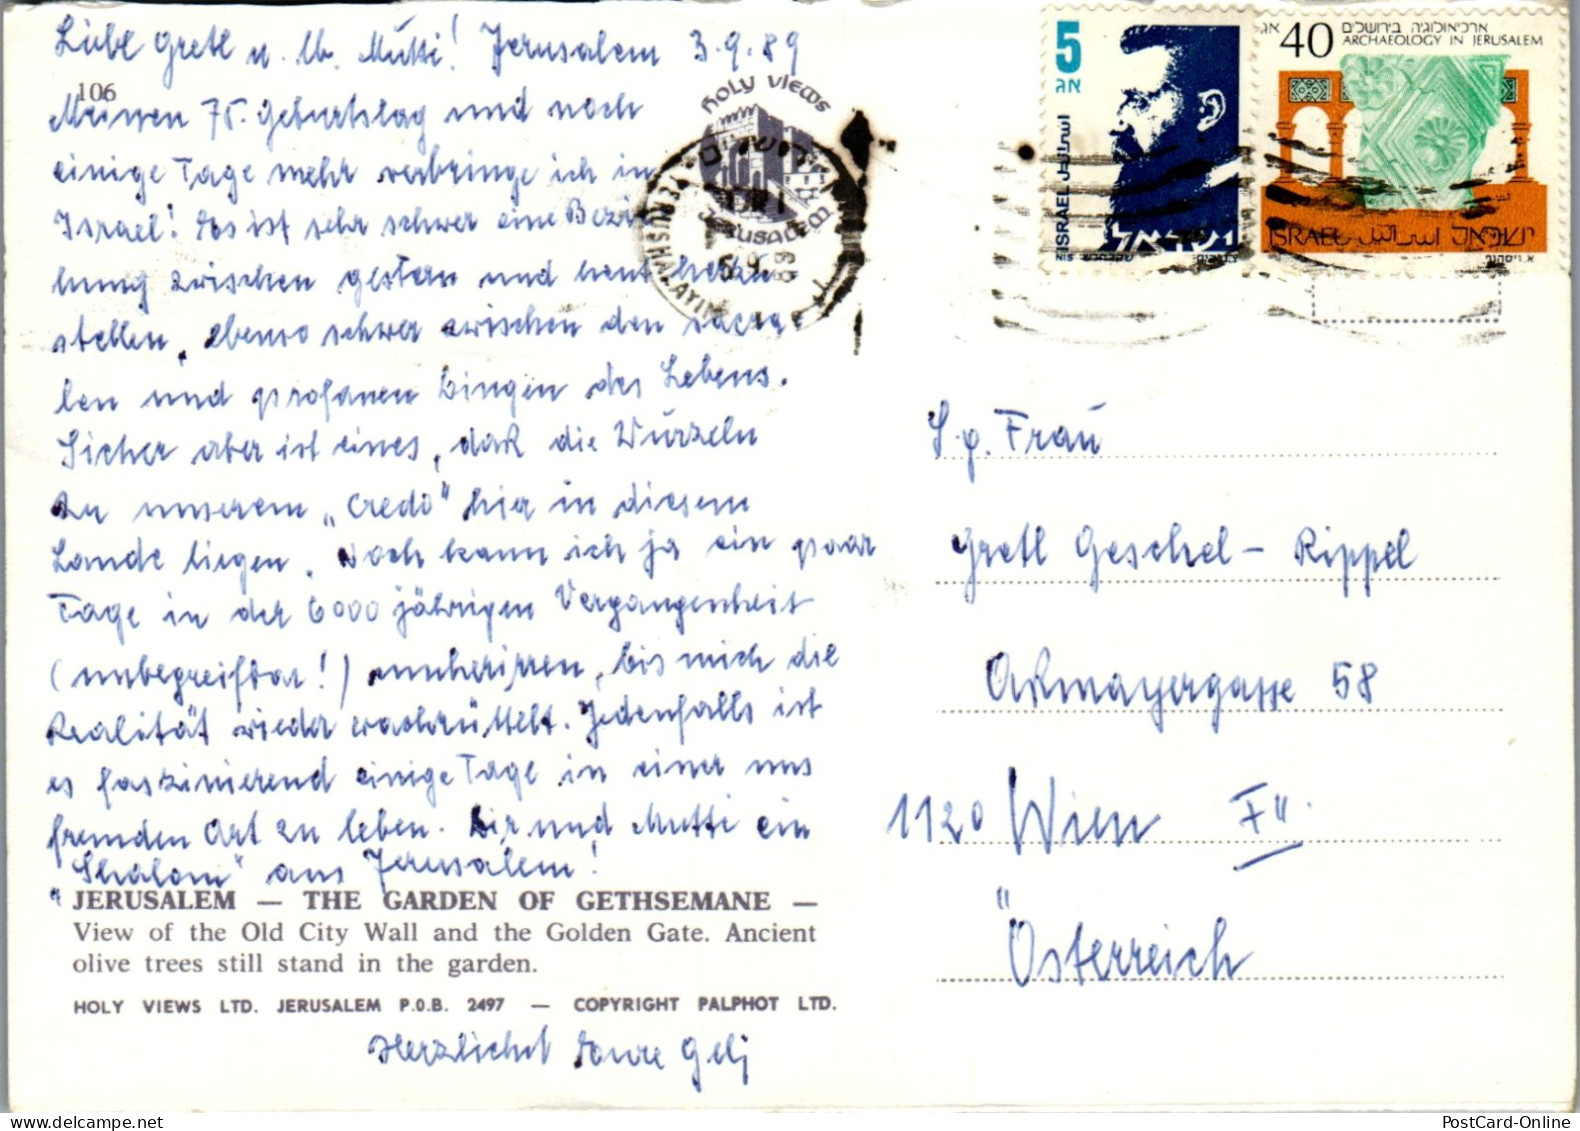 Liebe Gretl u. lb. Mutti! Jerusalem 3.9.89
106
Meinen 75. Geburtstag und noch
einige Tage mehr verbringe ich in
Israel! Es ist sehr schwer eine Bezie
hung zwischen gestern und heut herzu
stellen, ebenso schwer zwischen den
len und profanen Dingen des Lebens.
Sicher aber ist eines, daß die Wurzeln
zu unserem „Credo" hier in diesem
Lande liegen. Doch kann ich ja ein paar
Tage in der 6000 jährigen Vergangenheit
(unbegreifbar!) umherirren, bis mich die
Realität wieder wachrüttelt. Jedenfalls ist
es faszinierend einige Tage in einer uns
fremden Art zu leben. Dir und Mutti ein
"Shalom" aus Jerusalem!
JERUSALEM — THE GARDEN OF GETHSEMANE —
View of the Old City Wall and the Golden Gate. Ancient
olive trees still stand in the garden.
HOLY VIEWS LTD. JERUSALEM P.O.B. 2497 — COPYRIGHT PALPHOT LTD.
Herzlichst Eure Geli
HOLY VIEWS
JERUSALEM
ירושלים
YERUSHALAYIM
5 אג
ISRAEL اسرائيل
ישראל
40 אג
ארכיאולוגיה בירושלים
ARCHAEOLOGY IN JERUSALEM
ISRAEL اسرائيل ישראל
S.g. Frau
Gretl Geschel - Rippel
Aßmayergasse 58
1120 Wien
Österreich
PostCard-Online